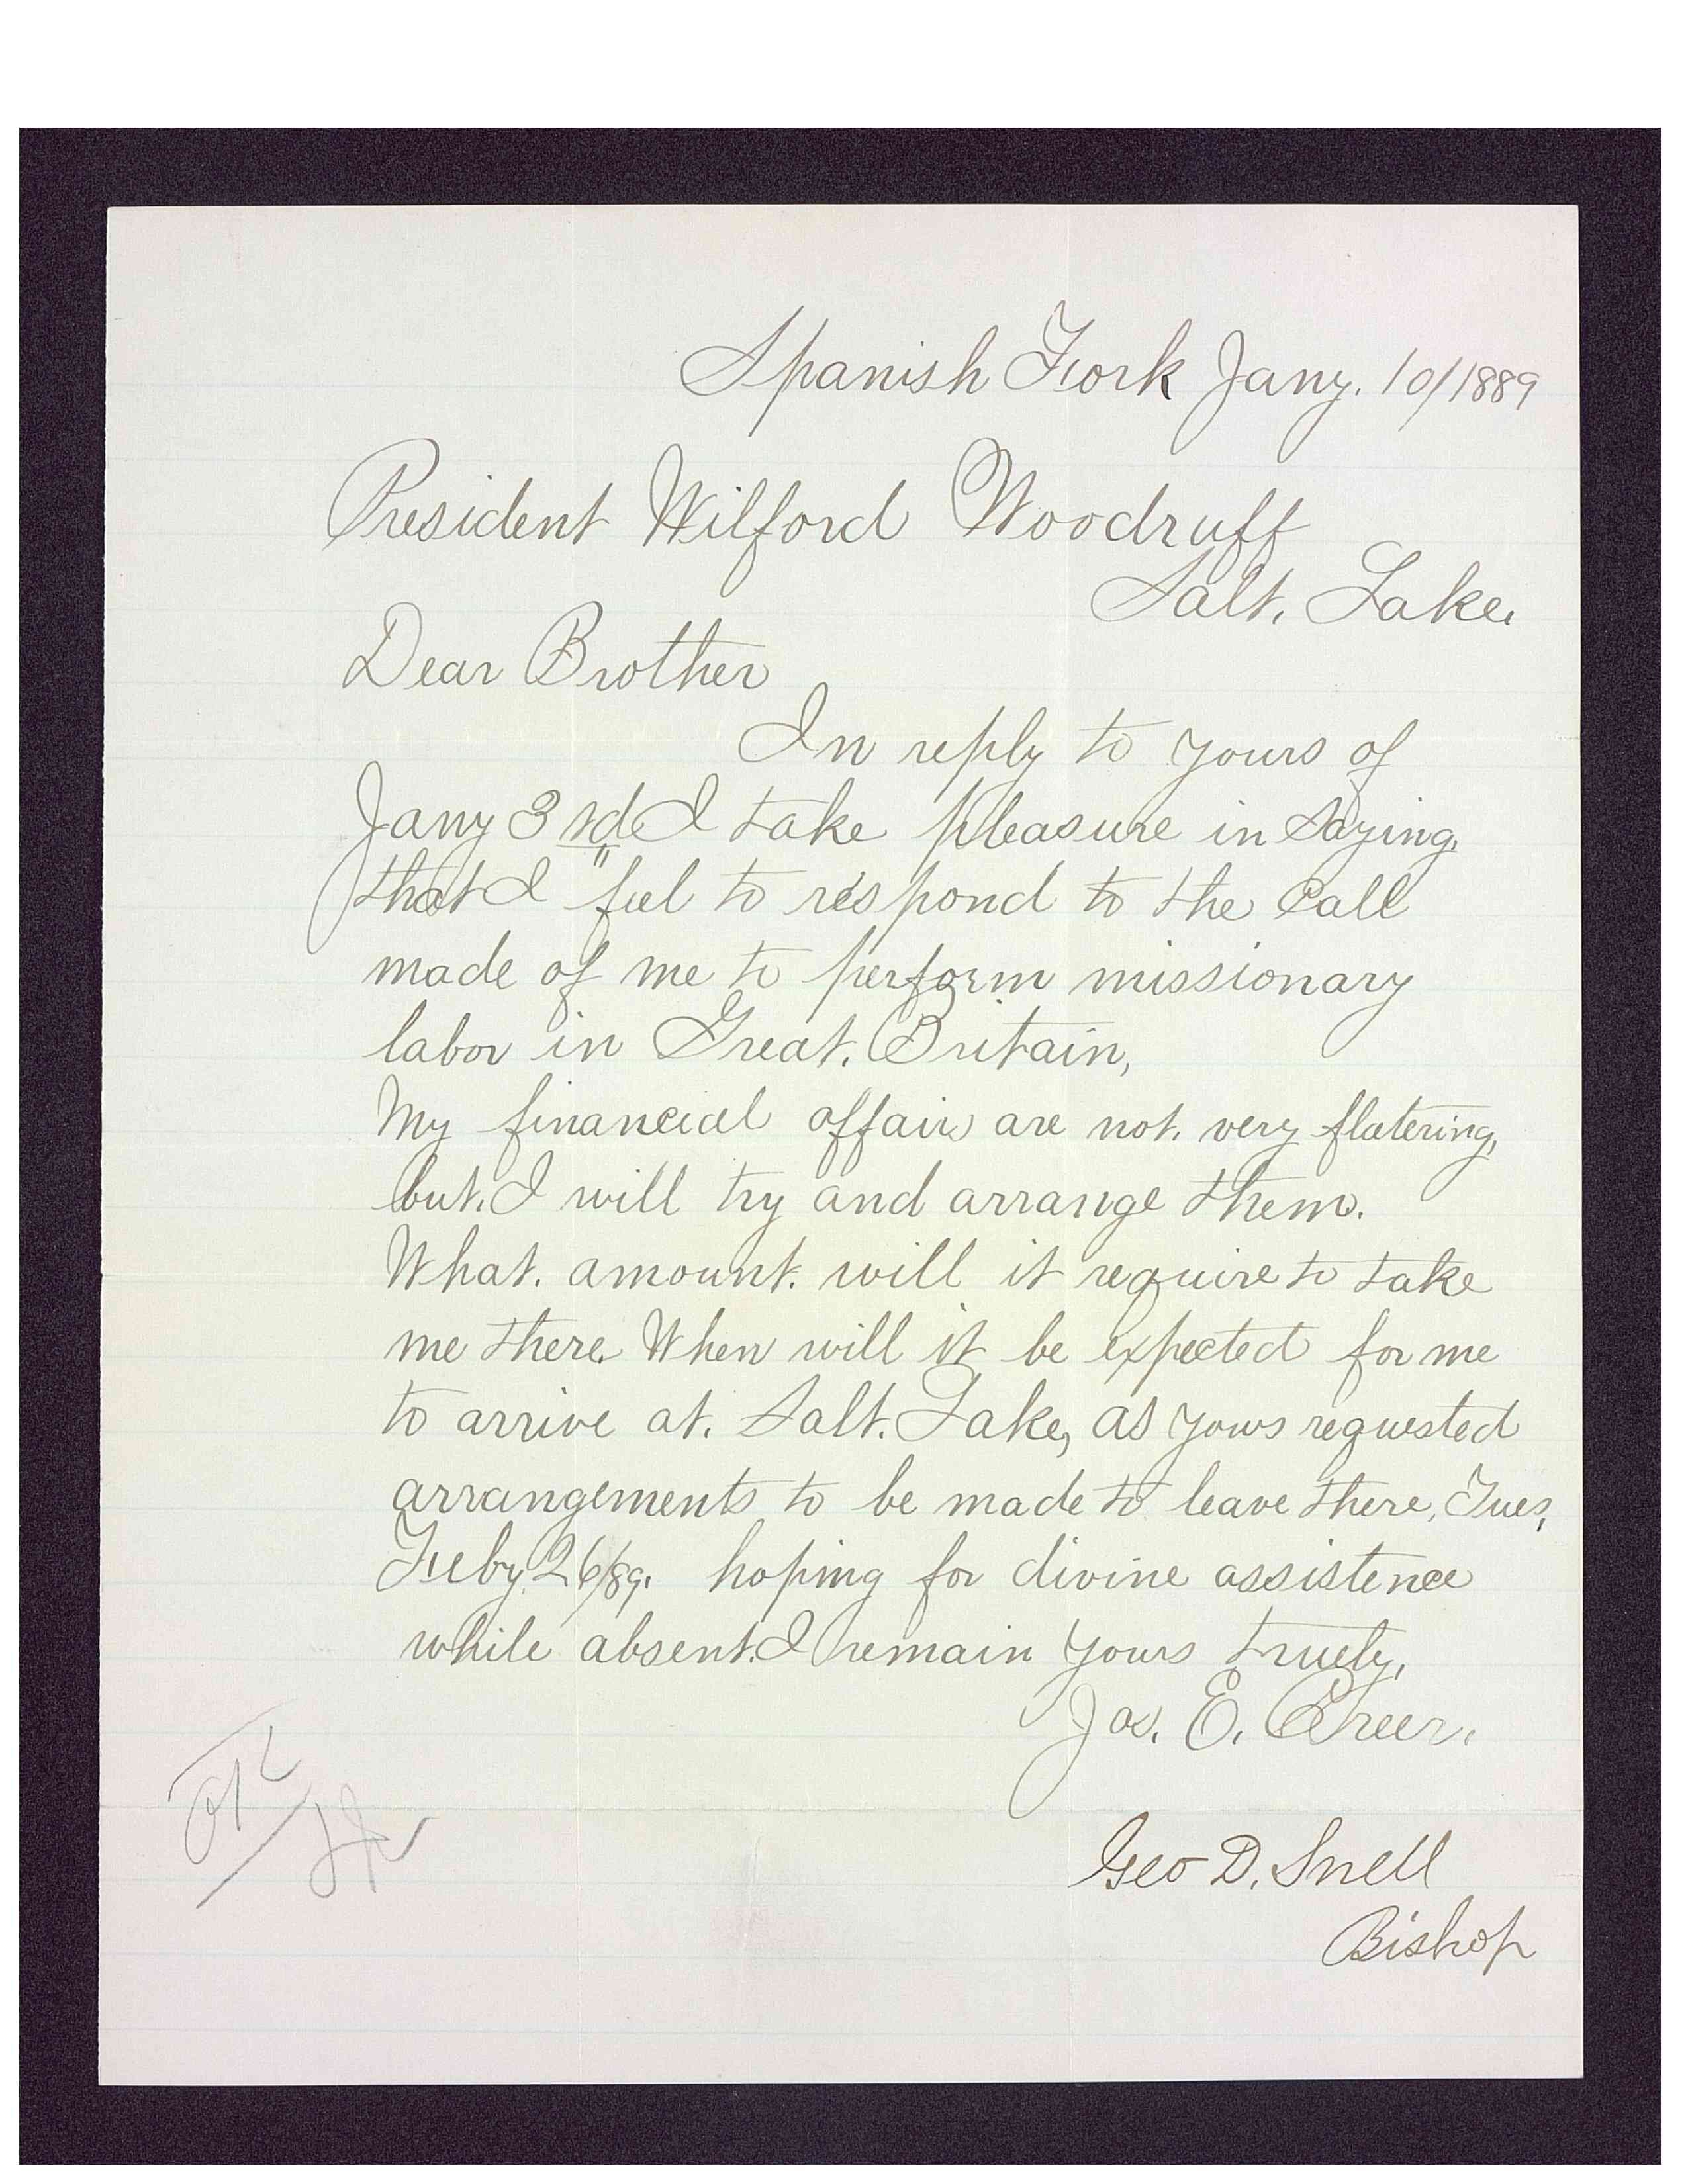 Spanish Fork Jany. 10/1889
President Wilford Woodruff
Salt. Lake.
Dear Brother
In reply to yours of
Jany 3rd I take pleasure in saying,
that I feel to respond to the Call
made of me to perform missionary
labor in Great. Britain,
My financial affairs are not. very flatering,
but. I will try and arrange them.
What. amount. will it require to take
me there. When will it be expected for me
to arrive at. Salt. Lake, as yours requested
arrangements to be made to leave there, Tues,
Feby. 26/89. hoping for divine assistence
while absent. I remain yours truely,
Jos. E. Creer.
Geo D. Snell
Bishop